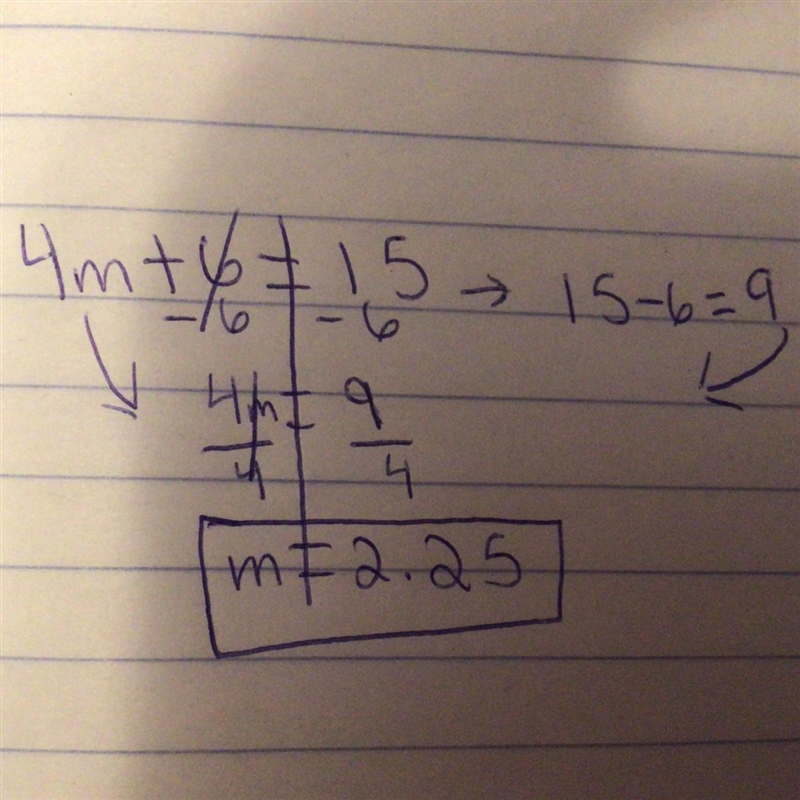 4m + 6 = 15 → 15 - 6 = 9
- 6 - 6
4m = 9
4 4
m = 2.25